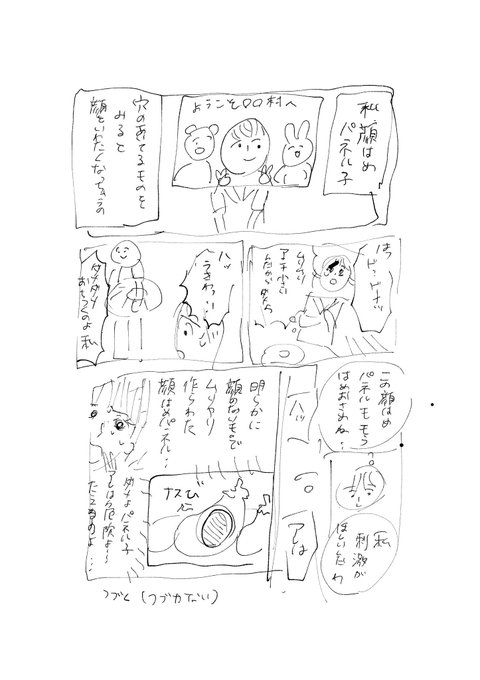 私、顔はめ
パネル子
ようこそ〇〇村へ
穴のあいてるものを
みると
顔をいれたくなっちゃうの
はっ
ドーナッツ
ムリムリ
ハッ
うきわ…!
ダメダメ
おちつくのよ私
この顔はめ
パネルももう
はめおさめね…
私
刺激が
ほしいんだわ
ハッ
アレは
明らかに
顔のないもので
ムリヤリ
作られた
顔はめパネル…
ナスび
ダメよパネル子
アレは危険よ…
たえるのよ…
つづく(つづかない)